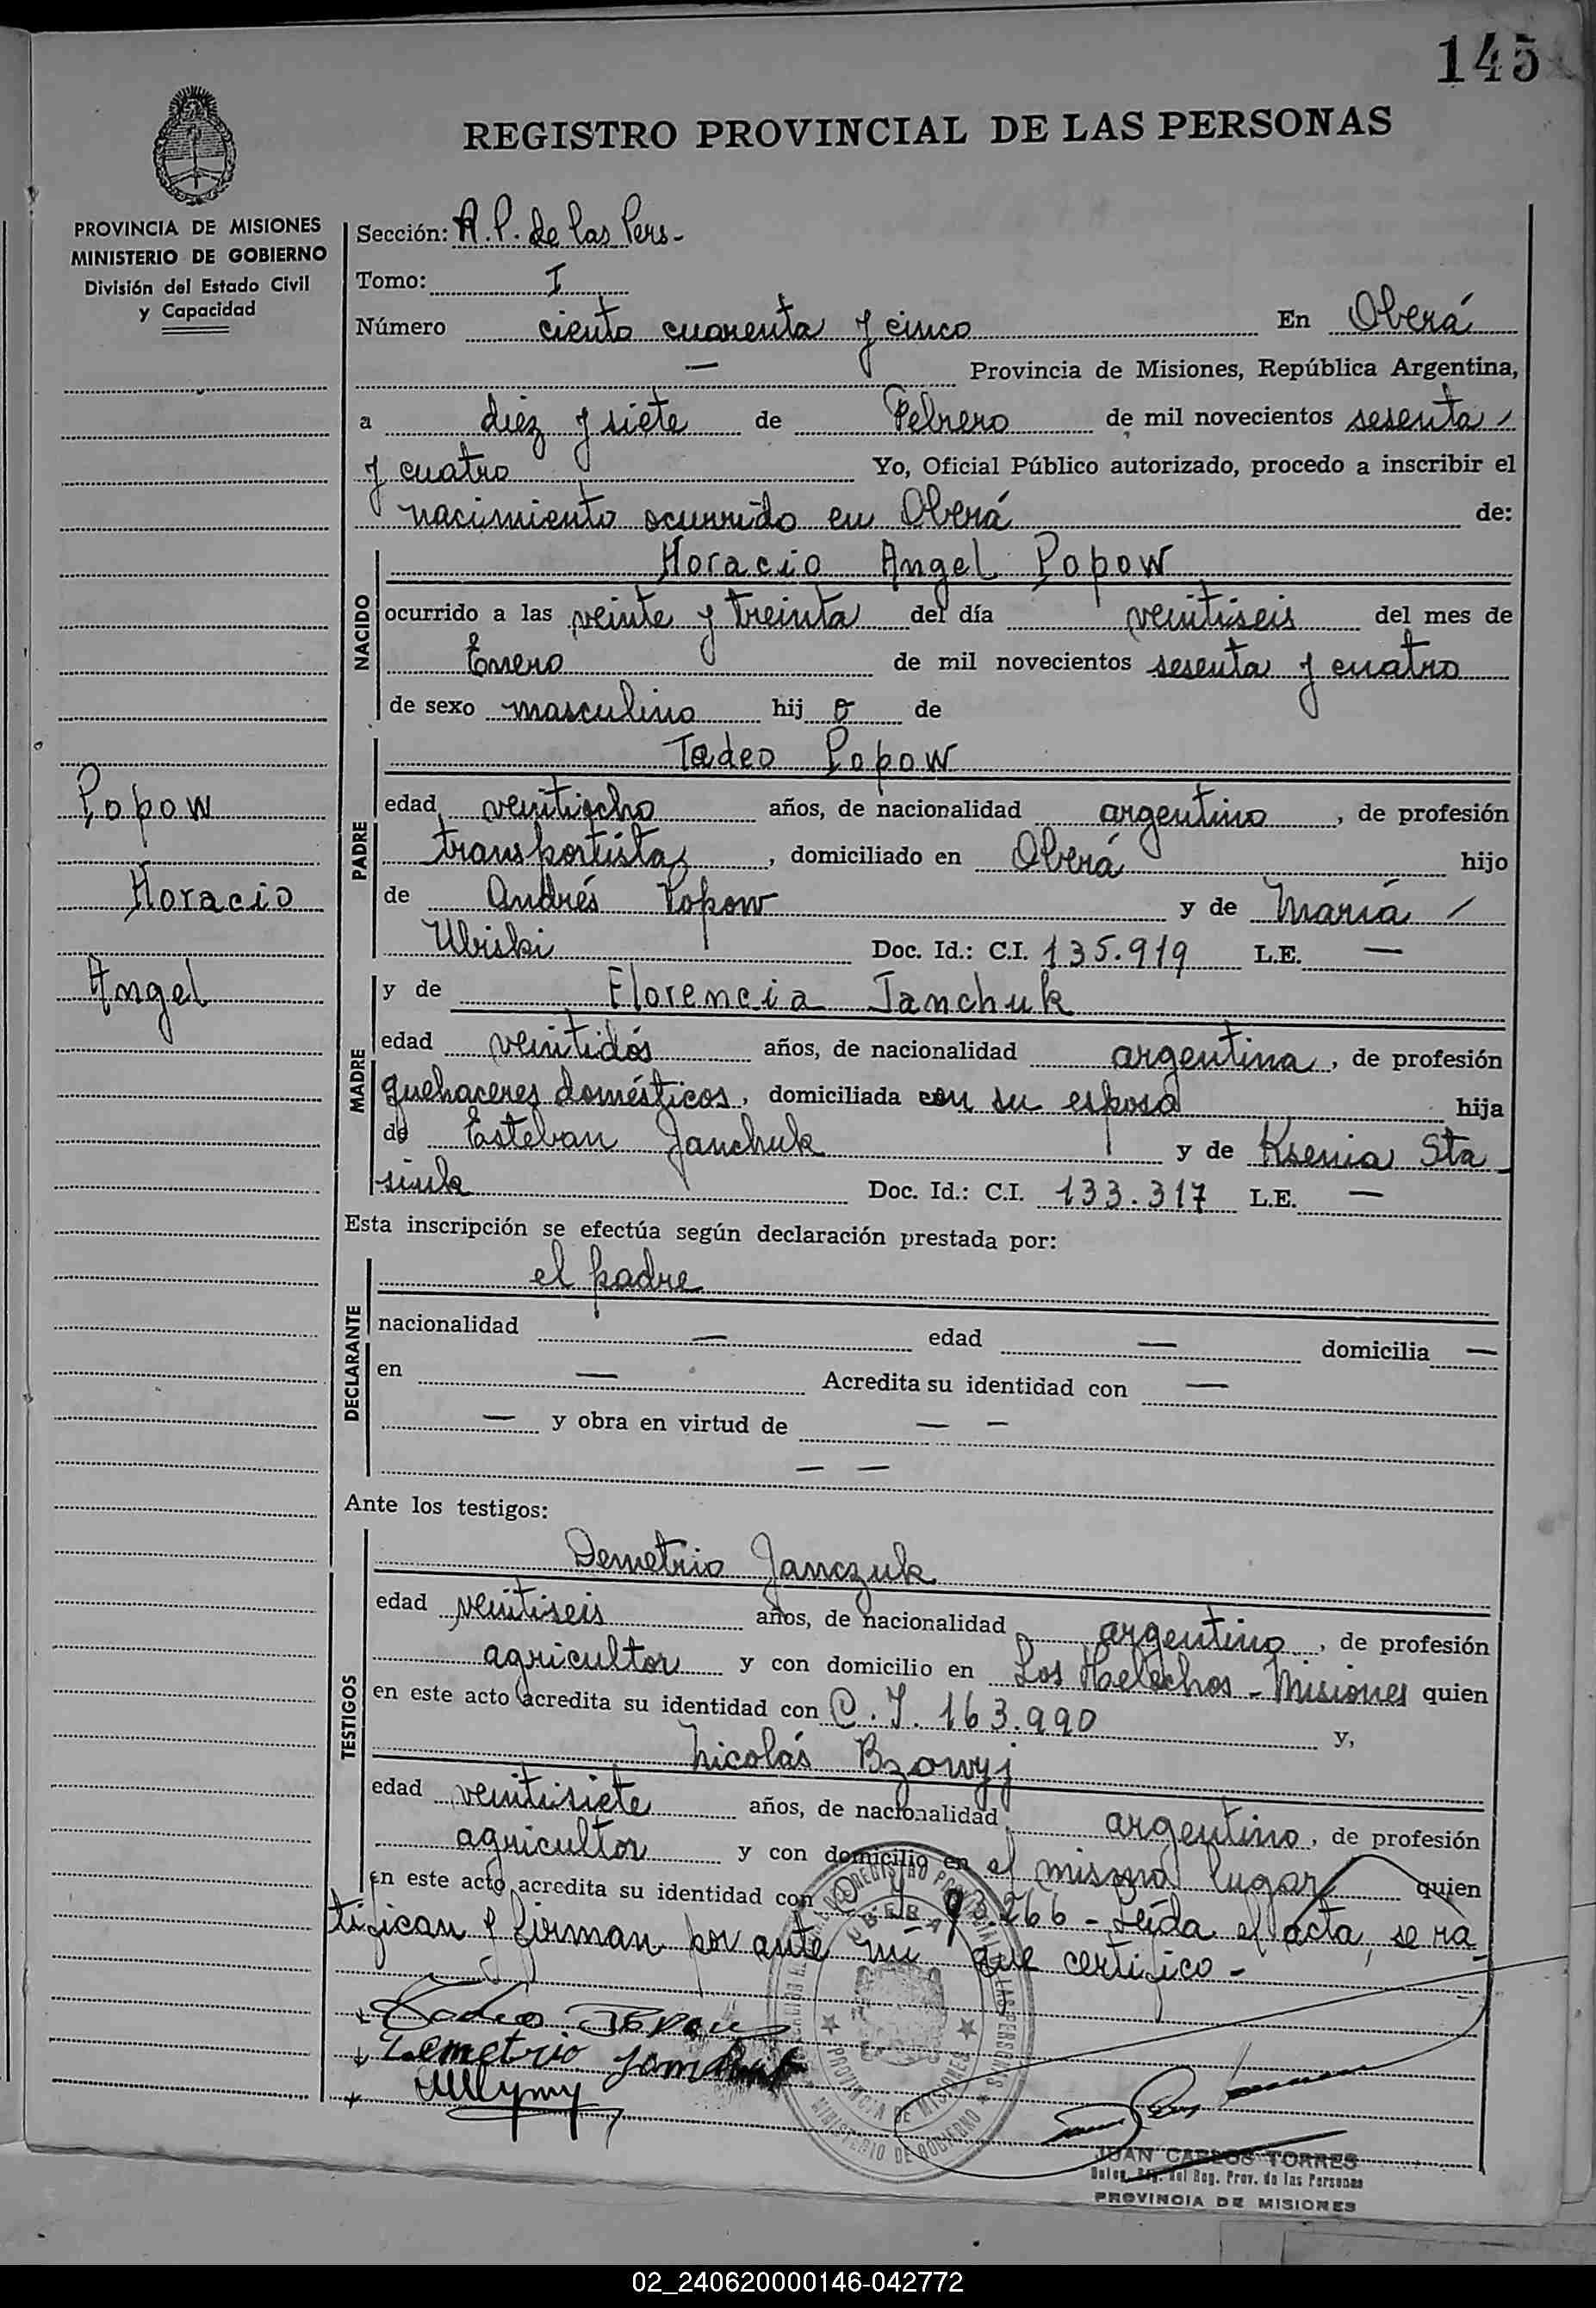 145
REGISTRO PROVINCIAL DE LAS PERSONAS
PROVINCIA DE MISIONES
MINISTERIO DE GOBIERNO
División del Estado Civil
y Capacidad
Popow
Horacio
Angel
Sección: R.P. de las Pers-
Tomo: I
Número ciento cuarenta y cinco En Oberá
— Provincia de Misiones, República Argentina,
a diez y siete de Febrero de mil novecientos sesenta
y cuatro Yo, Oficial Público autorizado, procedo a inscribir el
nacimiento ocurrido en Oberá de:
NACIDO
Horacio Angel Popow
ocurrido a las veinte y treinta del día veintiseis del mes de
Enero de mil novecientos sesenta y cuatro
de sexo masculino hij o de
PADRE
Tadeo Popow
edad veintiocho años, de nacionalidad argentino, de profesión
transportista, domiciliado en Oberá hijo
de Andrés Popow y de María /
Ubiski Doc. Id.: C.I. 135.919 L.E. —
MADRE
y de Florencia Janchuk
edad veintidós años, de nacionalidad argentina, de profesión
quehaceres domésticos, domiciliada con su esposo hija
de Esteban Janchuk y de Ksenia Sta
siuk Doc. Id.: C.I. 133.317 L.E. —
Esta inscripción se efectúa según declaración prestada por:
DECLARANTE
el padre
nacionalidad — edad — domicilia —
en — Acredita su identidad con —
— y obra en virtud de — —
— —
Ante los testigos:
TESTIGOS
Demetrio Janczuk
edad veintiseis años, de nacionalidad argentino, de profesión
agricultor y con domicilio en Los Helechos - Misiones quien
en este acto acredita su identidad con C.I. 163.990 y,
Nicolás Bzowyj
edad veintisiete años, de nacionalidad argentino, de profesión
agricultor y con domicilio en el mismo lugar quien
en este acto acredita su identidad con 93.266 - Leída el acta, se ra
tifican y firman por ante mi que certifico -
Tadeo Popow
Demetrio
OBERA
PROVINCIA DE MISIONES
MINISTERIO DE GOBIERNO
JUAN CARLOS TORRES
del Reg. Prov. de las Personas
PROVINCIA DE MISIONES
02_240620000146-042772